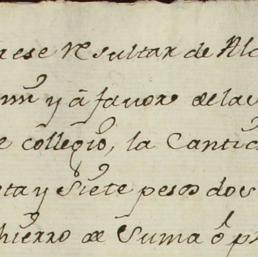 ese resultar de Alc
y a favor de la
collegio, la Canti
ta y siete pesos dos
hierro de Suma o p